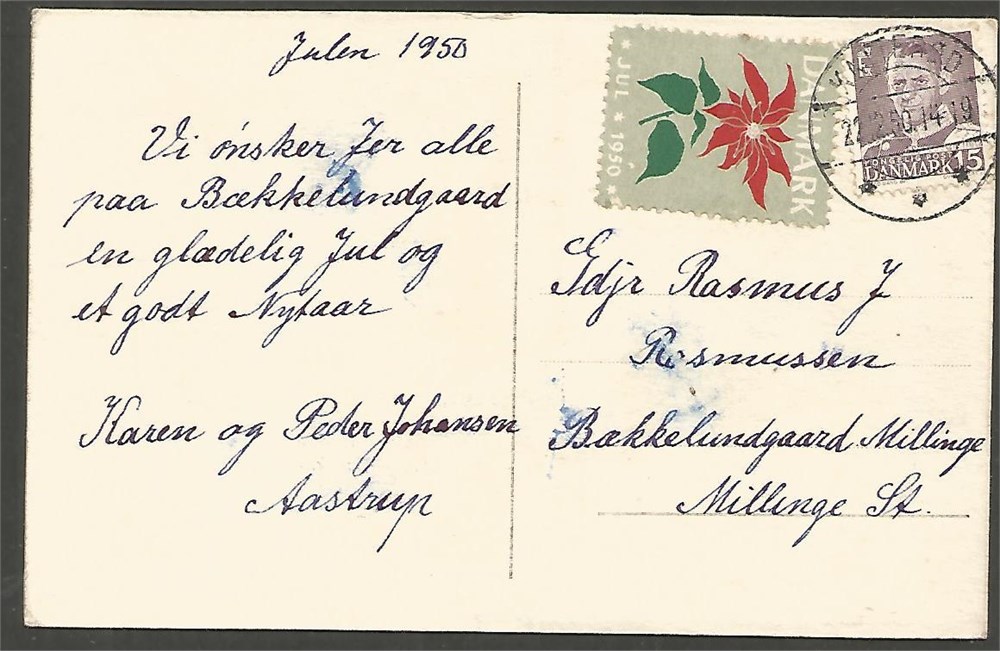 Julen 1950
Vi ønsker Jer alle
paa Bækkelundgaard
en glædelig Jul og
et godt Nytaar
Karen og Peder Johansen
Aastrup
JUL 1950
DANMARK
22.12.50.14-19
DANMARK 15
Gdjr Rasmus J
Rasmussen
Bækkelundgaard Millinge
Millinge St.